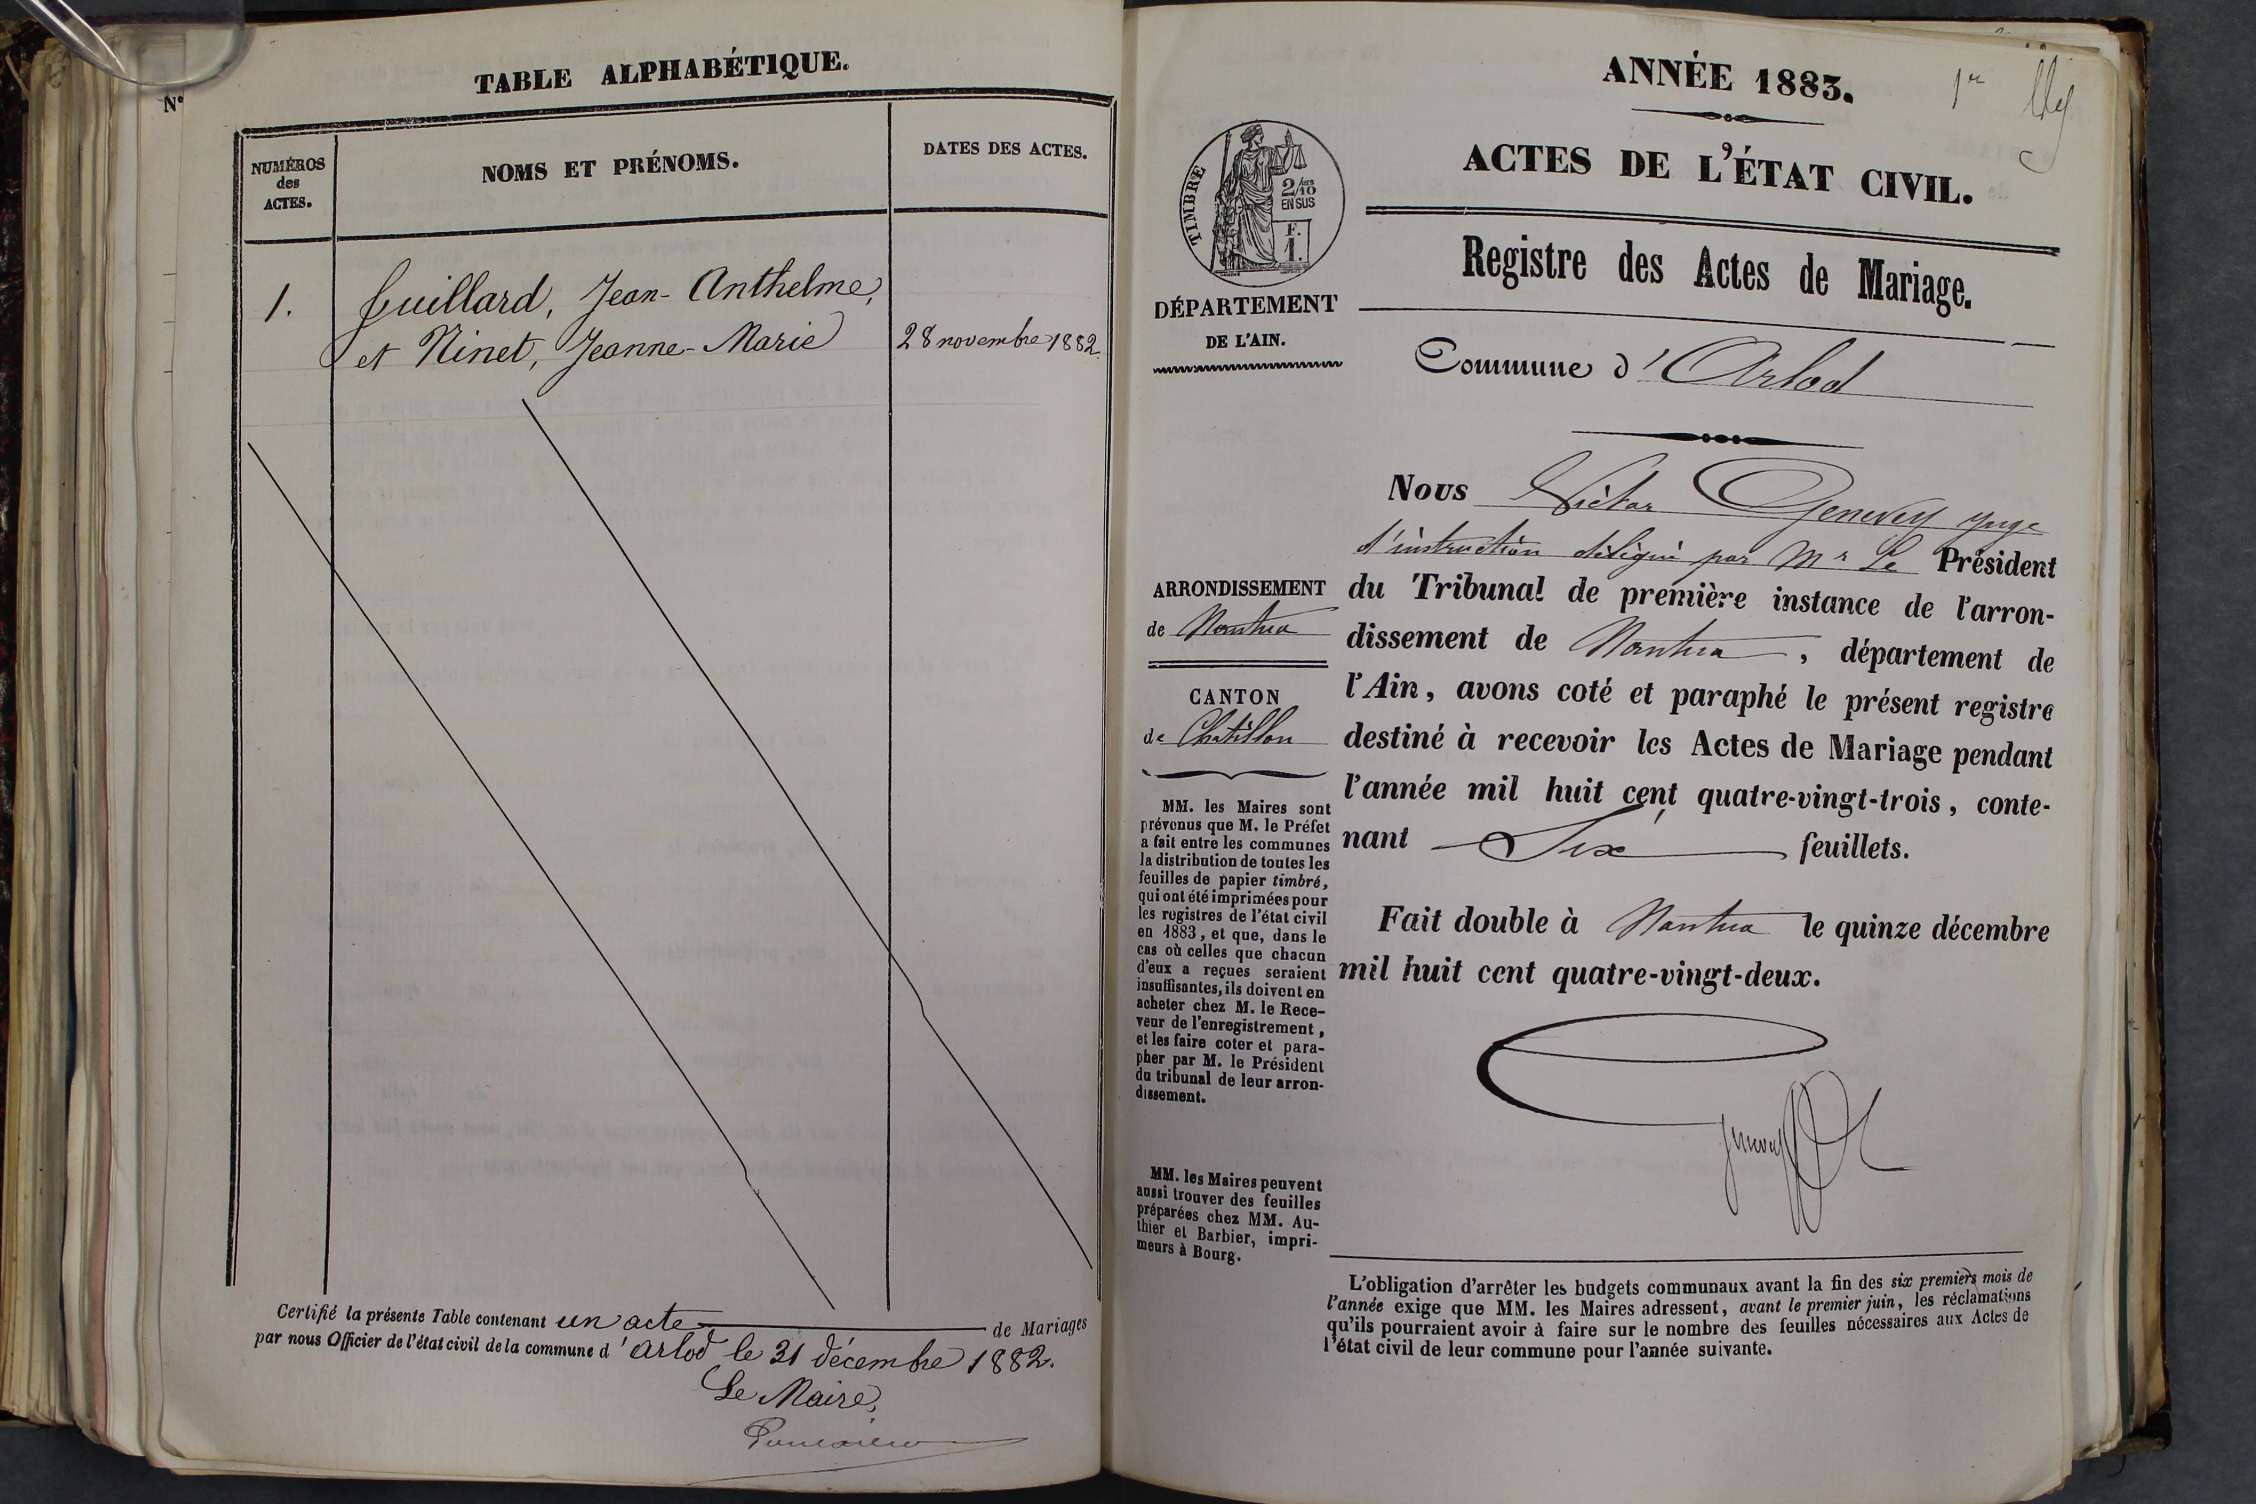 TABLE ALPHABÉTIQUE.
N°
NUMÉROS
des
ACTES.
NOMS ET PRÉNOMS.
DATES DES ACTES.
1.
Guillard, Jean-Anthelme,
et Ninet, Jeanne-Marie
28 novembre 1882.
Certifié la présente Table contenant un acte de Mariages
par nous Officier de l'état civil de la commune d'Arlod le 31 décembre 1882.
Le Maire,
ANNÉE 1883.
1er
TIMBRE
2/10
EN SUS
F.
1.
ACTES DE L'ÉTAT CIVIL.
Registre des Actes de Mariage.
DÉPARTEMENT
DE L'AIN.
Commune d'Arlod
ARRONDISSEMENT
de Nantua
CANTON
de Chatillon
MM. les Maires sont
prévenus que M. le Préfet
a fait entre les communes
la distribution de toutes les
feuilles de papier timbré,
qui ont été imprimées pour
les registres de l'état civil
en 1883, et que, dans le
cas où celles que chacun
d'eux a reçues seraient
insuffisantes, ils doivent en
acheter chez M. le Rece-
veur de l'enregistrement,
et les faire coter et para-
pher par M. le Président
du tribunal de leur arron-
dissement.
MM. les Maires peuvent
aussi trouver des feuilles
préparées chez MM. Au-
thier et Barbier, impri-
meurs à Bourg.
Nous Victor Genevey juge
d'instruction délégué par Mr Le Président
du Tribunal de première instance de l'arron-
dissement de Nantua, département de
l'Ain, avons coté et paraphé le présent registre
destiné à recevoir les Actes de Mariage pendant
l'année mil huit cent quatre-vingt-trois, conte-
nant Six feuillets.
Fait double à Nantua le quinze décembre
mil huit cent quatre-vingt-deux.
Genevey
L'obligation d'arrêter les budgets communaux avant la fin des six premiers mois de
l'année exige que MM. les Maires adressent, avant le premier juin, les réclamations
qu'ils pourraient avoir à faire sur le nombre des feuilles nécessaires aux Actes de
l'état civil de leur commune pour l'année suivante.